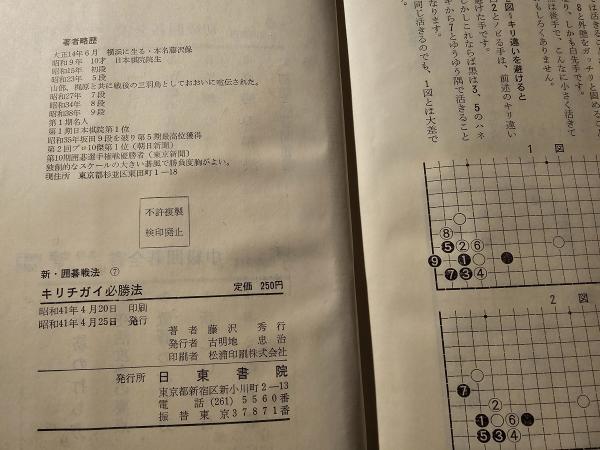 著者略歴
大正14年6月 横浜に生る・本名藤沢保
昭和9年 10才 日本棋院院生
昭和15年 初段
昭和23年 5段
山部、梶原と共に戦後の三羽烏としておおいに宣伝された。
昭和27年 7段
昭和34年 8段
昭和38年 9段
第1期名人
第1期日本棋院第1位
昭和35年坂田9段を破り第5期最高位獲得
第2回プロ10傑第1位（朝日新聞）
第10期囲碁選手権戦優勝者（東京新聞）
独創的なスケールの大きい碁風で勝負度胸がよい。
現住所 東京都杉並区東田町1—18
不許複製
検印廃止
新・囲碁戦法 ⑦
キリチガイ必勝法 定価 250円
昭和41年4月20日 印刷
昭和41年4月25日 発行
著者 藤沢秀行
発行者 古明地忠治
印刷者 松浦印刷株式会社
発行所 日東書院
東京都新宿区新小川町2—13
電話 (261) 5560番
振替東京 37871番
り、しかも白先手です。
は後手で、こんなに小さく活きて
もしろくありません。
図＝キリ違いを避けると
2とノビる手は、前述のキリ違い
避けた手です。
しかしこれならば黒は3、5のハネ
ギから7とゆうゆう隅で活きること
なります。
同じ活きるのでも、1図とは大差で
1 図
8
5 2 6
9 1 4
7 3
2 図
7
2
1 6
5 3 4